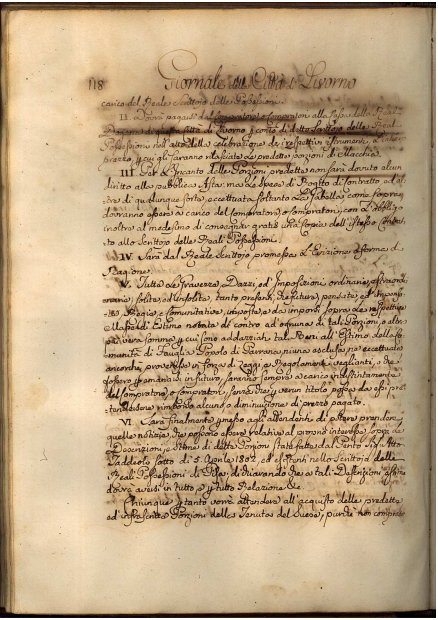 118 Giornale della Città di Livorno
carico del Reale Scrittojo delle Possessioni.
II. Dovrà pagarsi dal compratore o compratori alla Cassa della Reale
di questa Città di Livorno p conto di detto Scrittojo delle Reali
Possessioni nell'atto della celebrazione de' respettivi Istrumenti, il
prezzo, p cui gli saranno rilasciate le predette porzioni di Macchia.
III. Per l'Incanto delle Porzioni predette non sarà dovuto alcun
diritto alla pubblica Asta; ma le spese di Rogito di Contratto ed al=
tre di qualunque sorta, eccettuata soltanto la Gabella, come sopra,
dovranno essere a carico del Compratore, o Compratori, con l'obbligo
inoltre al medesimo di consegnar gratis una Copia dell'istesso Contrat=
to allo Scrittojo delle Reali Possessioni.
IV. Sarà dal Reale Scrittojo promessa l'Evizione a forma di
Ragione.
V. Tutte le Gravezze, Dazzi, ed Imposizioni ordinarie, e straordi=
narie, solite, ed insolite, tanto presenti, che future, pensate, ed impensa=
te, Regie, e Comunitative, imposte, e da imporsi, sopra le respettive
Masse di Estimo notate di contro ad ognuna di tali Porzioni, o altre
p cui sono addazziati tali Beni all'Estimo della Co=
munità di Fauglia Popolo di Parrana, niuna esclusa, nè eccettuata
ancorchè proveniente in forza di Leggi, e Regolamenti veglianti, o che
fossero p emanarsi in futuro, saranno sempre a carico indistintamente
del compratore, o compratori, senza che p verun titolo possa da essi pre=
tendersene rimborso alcuno, o diminuzione di prezzo pagato.
VI. Sarà finalmente permesso agli attendenti di potere prendere
quelle notizie, che possono essere relative al proprio interesse, sopra le
Descrizioni, e Stime di dette Porzioni state fatte dal Perito Sig.
Taddeolo sotto dì 5 Aprile 1802. ed esistenti nello Scrittojo delle
Reali Possessioni di Pisa; dichiarando che a tali Descrizioni e Stime
dovrà aversi in tutto, e p tutto Relazione &c.
Chiunque p tanto vorrà attendere all'acquisto delle predette
ed infrascritte Porzioni della Tenuta del Suese, purchè non comprese